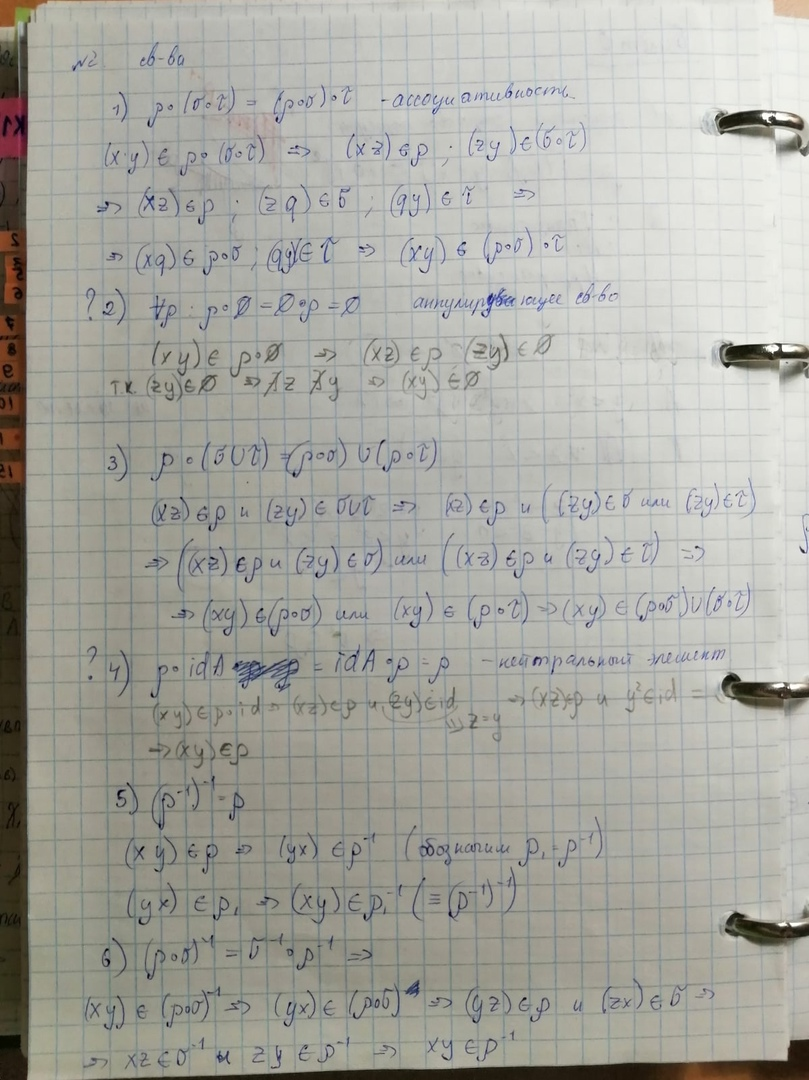 №2 св-ва
1) ρ∘(σ∘τ) = (ρ∘σ)∘τ - ассоциативность
(xy) ∈ ρ∘(σ∘τ) ⇒ (xz) ∈ ρ ; (zy) ∈ (σ∘τ)
⇒ (xz) ∈ ρ ; (zq) ∈ σ ; (qy) ∈ τ ⇒
⇒ (xq) ∈ ρ∘σ ; (qy) ∈ τ ⇒ (xy) ∈ (ρ∘σ)∘τ
? 2) ∀ρ : ρ∘∅ = ∅∘ρ = ∅ аннулирующее св-во
(xy) ∈ ρ∘∅ ⇒ (xz) ∈ ρ (zy) ∈ ∅
т.к. (zy) ∈ ∅ ⇒ ∄z ∄y ⇒ (xy) ∈ ∅
3) ρ∘(σ∪τ) = (ρ∘σ)∪(ρ∘τ)
(xz) ∈ ρ и (zy) ∈ σ∪τ ⇒ (xz) ∈ ρ и ((zy) ∈ σ или (zy) ∈ τ)
⇒ ((xz) ∈ ρ и (zy) ∈ σ) или ((xz) ∈ ρ и (zy) ∈ τ) ⇒
⇒ (xy) ∈ (ρ∘σ) или (xy) ∈ (ρ∘τ) ⇒ (xy) ∈ (ρ∘σ)∪(σ∘τ)
? 4) ρ∘idA = idA∘ρ = ρ - нейтральный элемент
(xy) ∈ ρ∘id ⇒ (xz) ∈ ρ и (zy) ∈ id ⇒ (xz) ∈ ρ и y² ∈ id =
⇓ z = y
⇒ (xy) ∈ ρ
5) (ρ⁻¹)⁻¹ = ρ
(xy) ∈ ρ ⇒ (yx) ∈ ρ⁻¹ (обозначим ρ₁ = ρ⁻¹)
(yx) ∈ ρ₁ ⇒ (xy) ∈ ρ₁⁻¹ (≡ (ρ⁻¹)⁻¹)
6) (ρ∘σ)⁻¹ = σ⁻¹∘ρ⁻¹ ⇒
(xy) ∈ (ρ∘σ)⁻¹ ⇒ (yx) ∈ (ρ∘σ) ⇒ (yz) ∈ ρ и (zx) ∈ σ ⇒
⇒ xz ∈ σ⁻¹ и zy ∈ ρ⁻¹ ⇒ xy ∈ ρ⁻¹